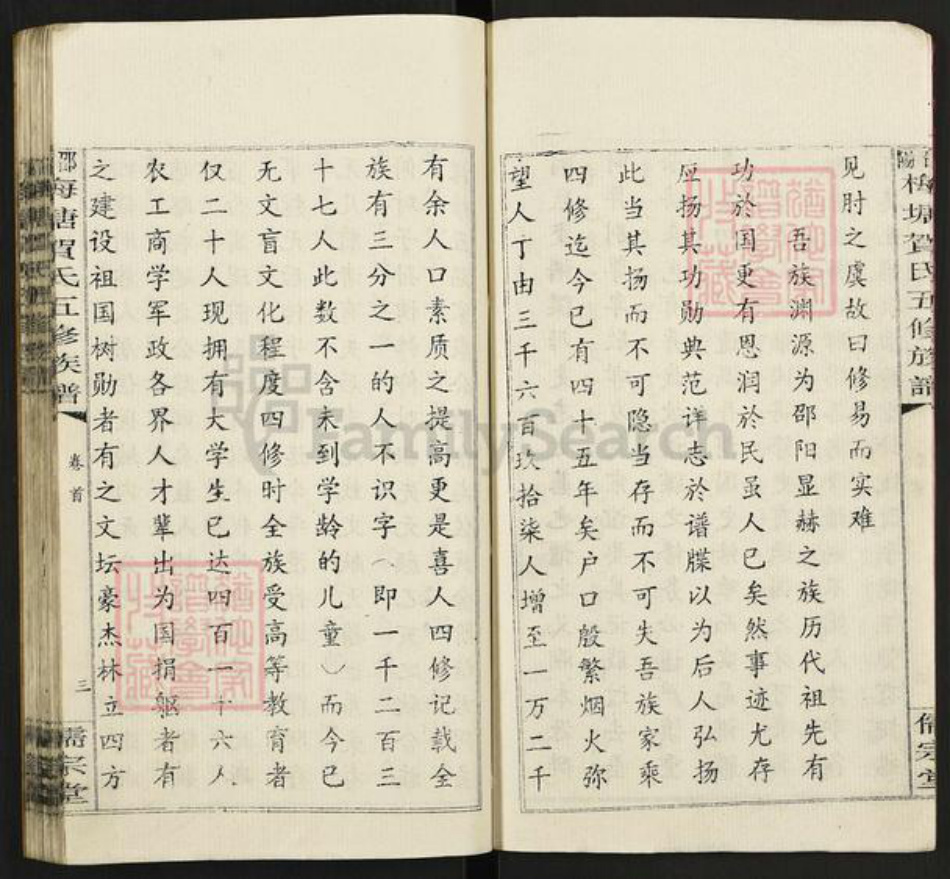 梅塘賀氏五修族譜
儒宗堂
见肘之虞故曰修易而实难
吾族渊源为邵阳显赫之族历代祖先有
功於国更有恩润於民虽人已矣然事迹尤存
应扬其功勋典范详志於谱牒以为后人弘扬
此当其扬而不可隐当存而不可失吾族家乘
四修迄今已有四十五年矣户口殷繁烟火弥
望人丁由三千六百玖拾柒人增至一万二千
有余人口素质之提高更是喜人四修记载全
族有三分之一的人不识字（即一千二百三
十七人此数不含未到学龄的儿童）而今已
无文盲文化程度四修时全族受高等教育者
仅二十人现拥有大学生已达四百一十六人
农工商学军政各界人才辈出为国捐躯者有
之建设祖国树勋者有之文坛豪杰林立四方
邵
梅唐賀氏五修族普
卷首
三
儒宗堂
FamilySearch